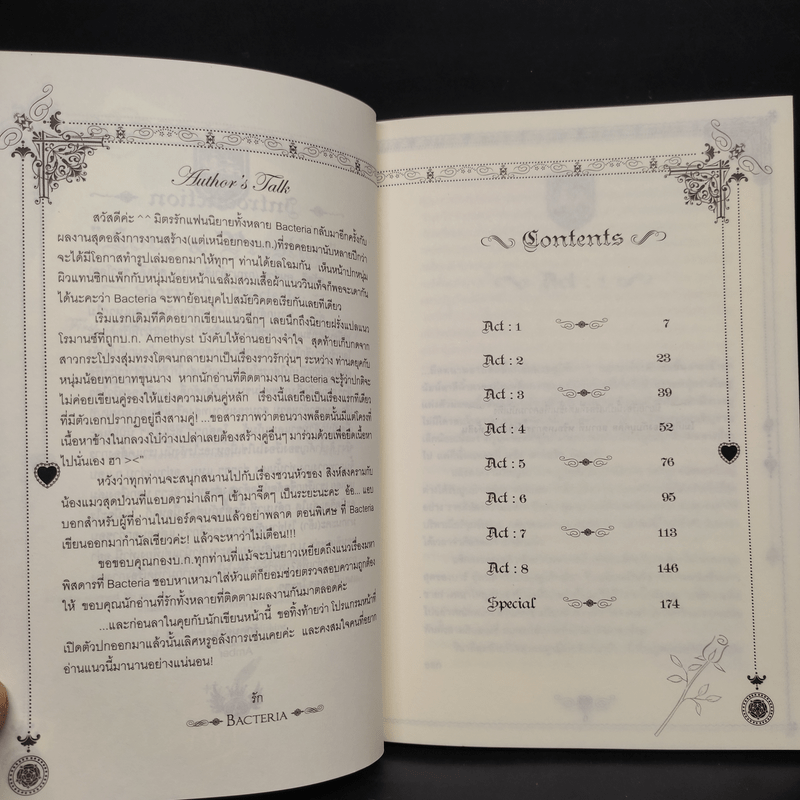 Author's Talk
สวัสดีค่ะ ^ ^ มิตรรักแฟนนิยายทั้งหลาย Bacteria กลับมาอีกครั้งกับ
ผลงานสุดอลังการงานสร้าง(แต่เหนื่อยกองบ.ก.)ที่รอคอยมานับหลายปีกว่า
จะได้มีโอกาสทำรูปเล่มออกมาให้ทุกๆ ท่านได้ยลโฉมกัน เห็นหน้าปกหนุ่ม
ผิวแทนซิกแพ็กกับหนุ่มน้อยหน้าแฉล้มสวมเสื้อผ้าแนววินเท็จก็พอจะเดากัน
ได้นะคะว่า Bacteria จะพาย้อนยุคไปสมัยวิคตอเรียกันเลยทีเดียว
เริ่มแรกเดิมทีคิดอยากเขียนแนวฉีกๆ เลยนึกถึงนิยายฝรั่งแปลแนว
โรมานซ์ที่ถูกบ.ก. Amethyst บังคับให้อ่านอย่างจำใจ สุดท้ายเก็บกดจาก
สาวกระโปรงสุ่มทรงโตจนกลายมาเป็นเรื่องราวรักวุ่นๆ ระหว่าง ท่านดยุคกับ
หนุ่มน้อยทายาทขุนนาง หากนักอ่านที่ติดตามงาน Bacteria จะรู้ว่าปกติจะ
ไม่ค่อยเขียนคู่รองให้แย่งความเด่นคู่หลัก เรื่องนี้เลยถือเป็นเรื่องแรกทีเดียว
ที่มีตัวเอกปรากฏอยู่ถึงสามคู่! ...ขอสารภาพว่าตอนวางพล็อตนั้นมีแต่โครงที่
เนื้อหาข้างในกลวงโบ๋ว่างเปล่าเลยต้องสร้างคู่อื่นๆ มาร่วมด้วยเพื่อยืดเนื้อหา
ไปนั่นเอง ฮา ><"
หวังว่าทุกท่านจะสนุกสนานไปกับเรื่องชวนหัวของ สิงห์สงครามกับ
น้องแมวสุดป่วนที่แอบดราม่าเล็กๆ เข้ามาจี๊ดๆ เป็นระยะนะคะ อ้อ... แอบ
บอกสำหรับผู้ที่อ่านในบอร์ดจนจบแล้วอย่าพลาด ตอนพิเศษ ที่ Bacteria
เขียนออกมากำนัลเชียวค่ะ! แล้วจะหาว่าไม่เตือน!!!
ขอขอบคุณกองบ.ก.ทุกท่านที่แม้จะบ่นยาวเหยียดถึงแนวเรื่องมหา
พิสดารที่ Bacteria ชอบหาเหามาใส่หัวแต่ก็ยอมช่วยตรวจสอบความถูกต้อง
ให้ ขอบคุณนักอ่านที่รักทั้งหลายที่ติดตามผลงานกันมาตลอดค่ะ
...และก่อนลาในคุยกับนักเขียนหน้านี้ ขอทิ้งท้ายว่า โปรแกรมหน้าที่
เปิดตัวปกออกมาแล้วนั้นเลิศหรูอลังการเช่นเคยค่ะ และคงสมใจคนที่อยาก
อ่านแนวนี้มานานอย่างแน่นอน!
รัก
BACTERIA
Contents
Act : 1 7
Act : 2 23
Act : 3 39
Act : 4 52
Act : 5 76
Act : 6 95
Act : 7 113
Act : 8 146
Special 174